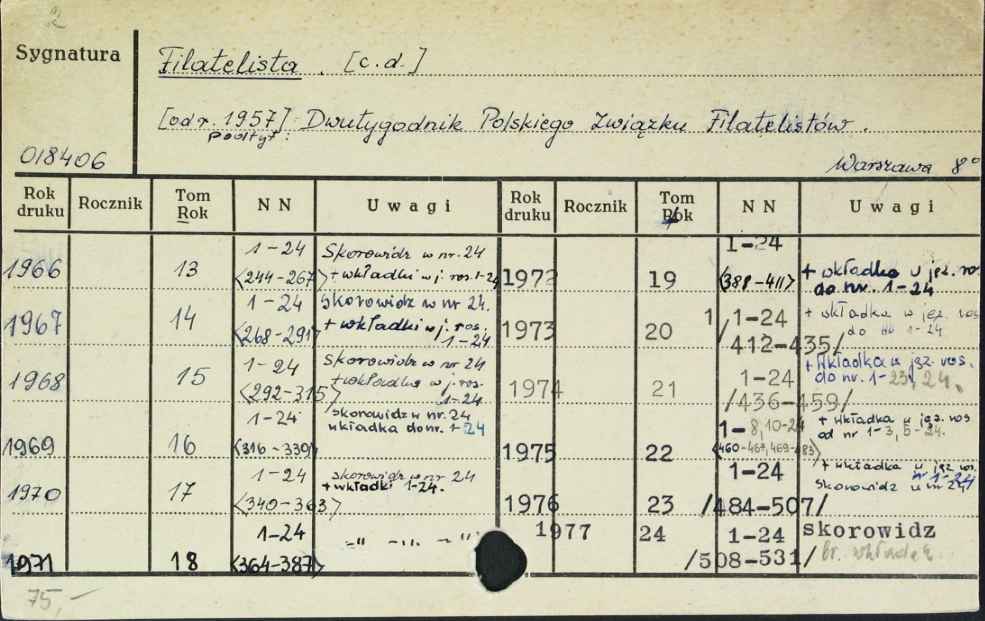 2
Sygnatura
Filatelista . [c.d.]
[od r. 1957] Dwutygodnik Polskiego Związku Filatelistów.
podtyt.:
018406
Warszawa 8°
Rok druku Rocznik Tom Rok NN Uwagi Rok druku Rocznik Tom Rok NN Uwagi
1966 13 1-24 <244-267> Skorowidz w nr. 24 + wkładki w j. ros. 1-24
1967 14 1-24 <268-291> Skorowidz w nr 24. + wkładki w j. ros. 1-24
1968 15 1-24 <292-315> Skorowidz w nr 24 + wkładka w j. ros. 1-24
1969 16 1-24 <316-339> skorowidz w nr. 24 wkładka do nr. 1-24
1970 17 1-24 <340-363> skorowidz w nr 24 + wkładki 1-24.
1971 18 1-24 <364-387> -"- -"- -"-
1972 19 1-24 <388-411> + wkładka w jęz. ros. do nr. 1-24
1973 20 1-24 /412-435/ + wkładka w jęz. ros do nr 1-24
1974 21 1-24 /436-459/ + Wkładka w jęz. ros. do nr. 1-23, 24.
1975 22 1-8, 10-24 + wkładka w jęz. ros od nr 1-3, 5-24.
1976 23 1-24 /484-507/ + wkładka w jęz. ros. nr 1-24 Skorowidz w nr 24
1977 24 1-24 /508-531/ skorowidz br. wkładek
75,-